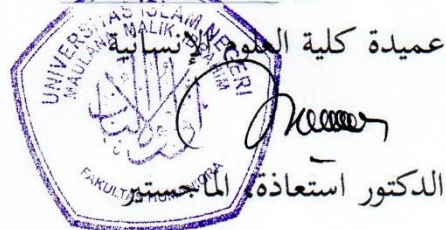 عميدة كلية العلوم الإنسانية
UNIVERSITAS ISLAM NEGERI
MAULANA MALIK IBRAHIM
FAKULTAS HUMANIORA
الدكتور استعاذة، الماجستير